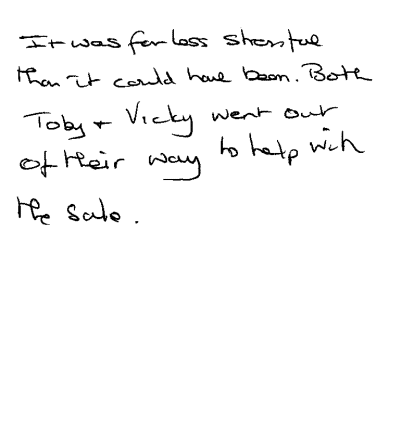 It was far less stressful
than it could have been. Both
Toby + Vicky went out
of their way to help with
the sale.